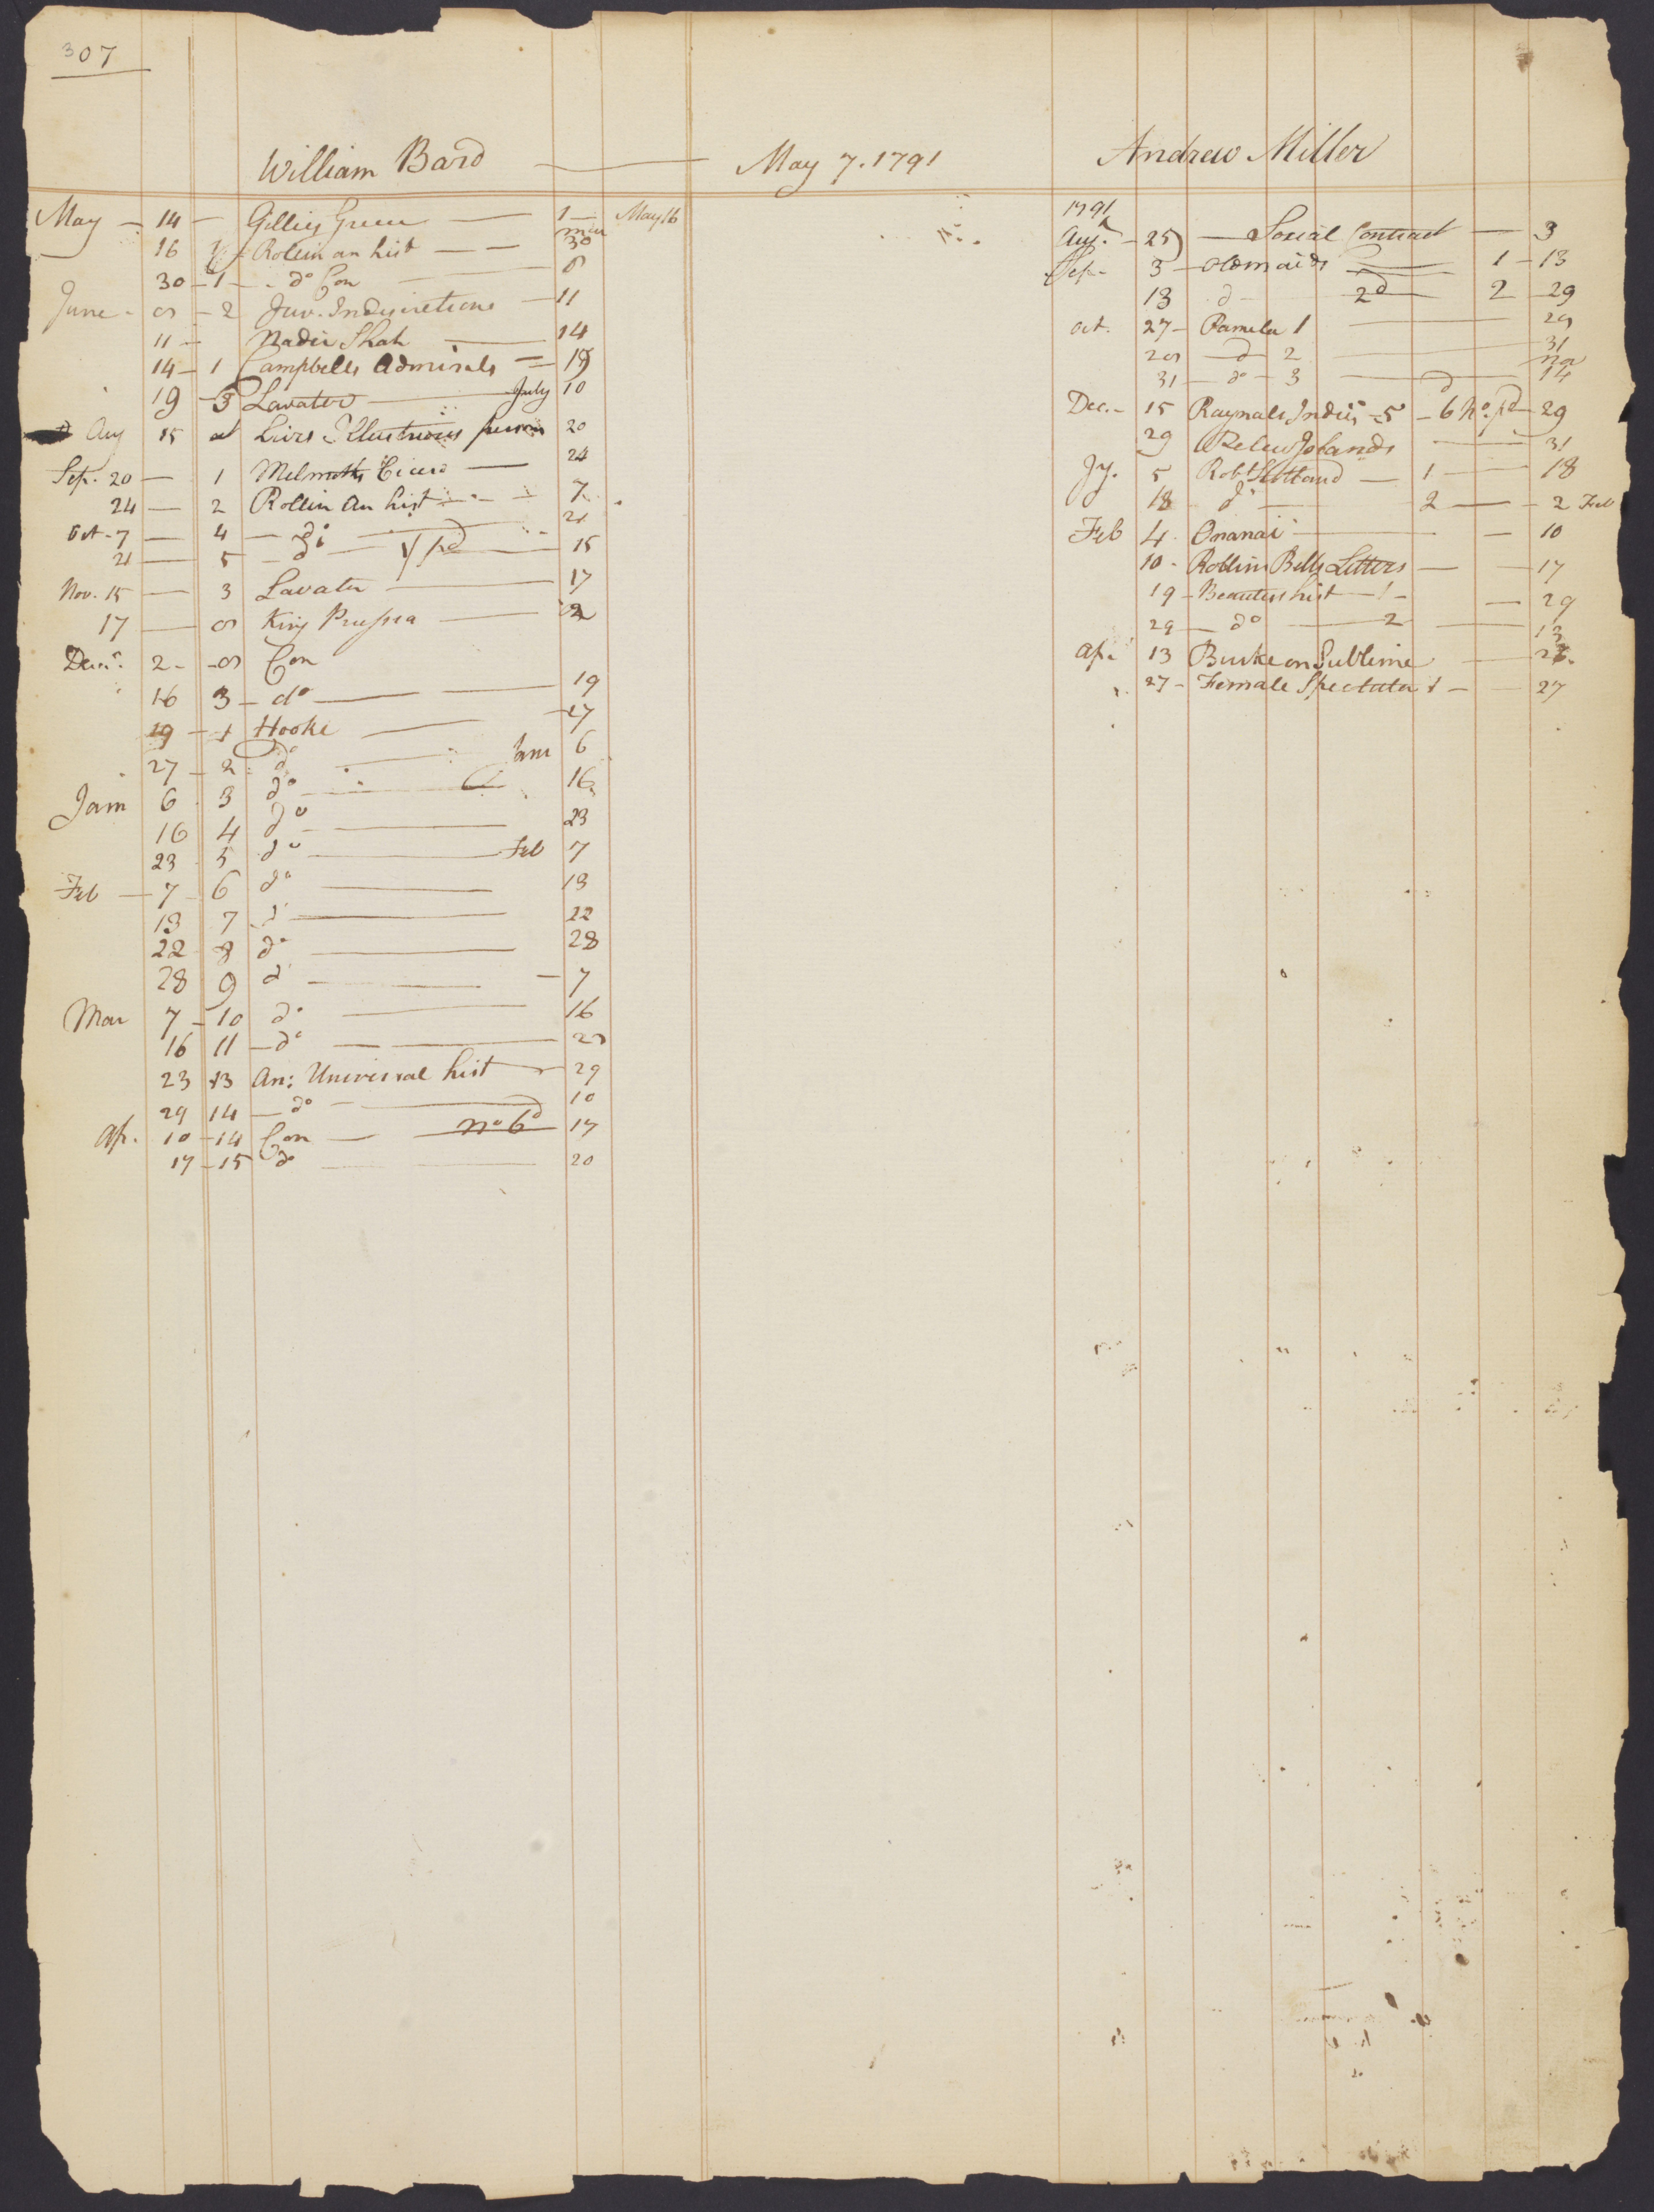 307
William Bard — May 7. 1791
May — 14 — Gillies Greece — 1 — May 16
16 Rollin an hist — — 30
30 — 1 — do Con — 8
June - 8 — 2 Juv. Indiscretions — 11
11 — Nadir Shah — 14
14 — 1 Campbells Admirals — 19
19 — 3 Lavater — July 10
Aug 15 Lives Illustrious persons 20
Sep. 20 — 1 Melmoths Cicero — 24
24 — 2 Rollin An hist — 7
Oct - 7 — 4 — do — 21
21 — 5 — do — pd — 15
Nov. 15 — 3 Lavater — 17
17 — 8 King Prussia — 2
Decr. 2 - 8 Con
16 3 — do — 19
19 — 1 Hooke — 27
27 — 2 do — Jan 6
Jan 6 3 do — 16
16 4 do — 23
23 5 do — Feb 7
Feb — 7 6 do — 13
13 7 do — 22
22 8 do — 28
28 9 do — 7
Mar 7 — 10 do — 16
16 11 — do — 23
23 13 An: Universal hist — 29
29 14 — do — 10
Ap. 10 — 14 Con — no 6d 17
17 — 15 do — 20
Andrew Miller
1791
Augt — 25 — Social Contract — 3
Sep - 3 — Old maids — 1 — 13
13 do — 2d — 2 — 29
Oct. 27 — Pamela 1 — 29
29 — do 2 — 31
31 — do — 3 — Nov 14
Dec. — 15 Raynals Indies — 5 — 6 no pd — 29
29 Pelew Islands — 31
Jy. 5 Robt Scotland — 1 — 18
18 do — 2 — 2 Feb
Feb 4 Omai — 10
10 - Rollins Bells Letters — 17
19 — Beauties hist — 1 — 29
29 — do — 2 — 13
Ap. 13 Burke on Sublime — 27
27 — Female Spectator 1 — 27